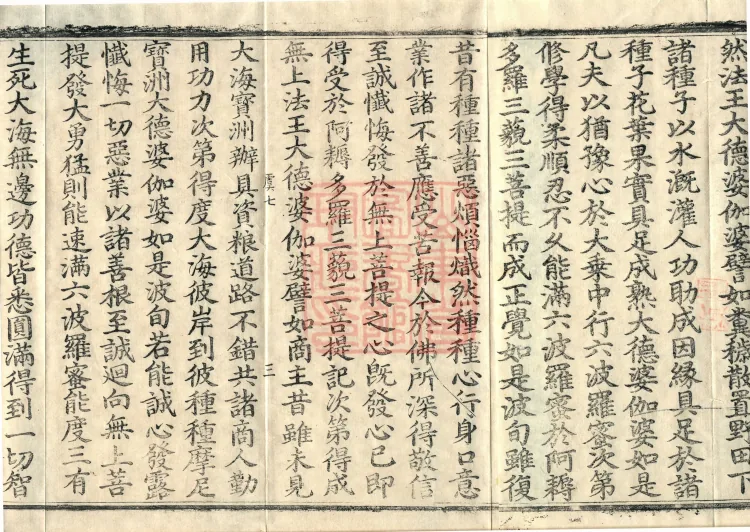 然法王大德婆伽婆譬如糞穢散置野田下
諸種子以水漑灌人功助成因緣具足於諸
種子花葉果實具足成熟大德婆伽婆如是
凡夫以猶豫心於大乗中行六波羅蜜次第
修學得柔順忍不久能滿六波羅蜜於阿耨
多羅三藐三菩提而成正覺如是波旬雖復
昔有種種諸惡煩惱熾然種種心行身口意
業作諸不善應受苦報今於佛所深得敬信
至誠懺悔發於無上菩提之心旣發心已即
得受於阿耨多羅三藐三菩提記次第得成
無上法王大德婆伽婆譬如商主昔雖未見
虞七 三
大海寶洲辦具資粮道路不錯共諸商人勤
用功力次第得度大海彼岸到彼種種摩尼
寶洲大德婆伽婆如是波旬若能誠心發露
懺悔一切惡業以諸善根至誠迴向無上菩
提發大勇猛則能速滿六波羅蜜能度三有
生死大海無邊功德皆悉圓滿得到一切智